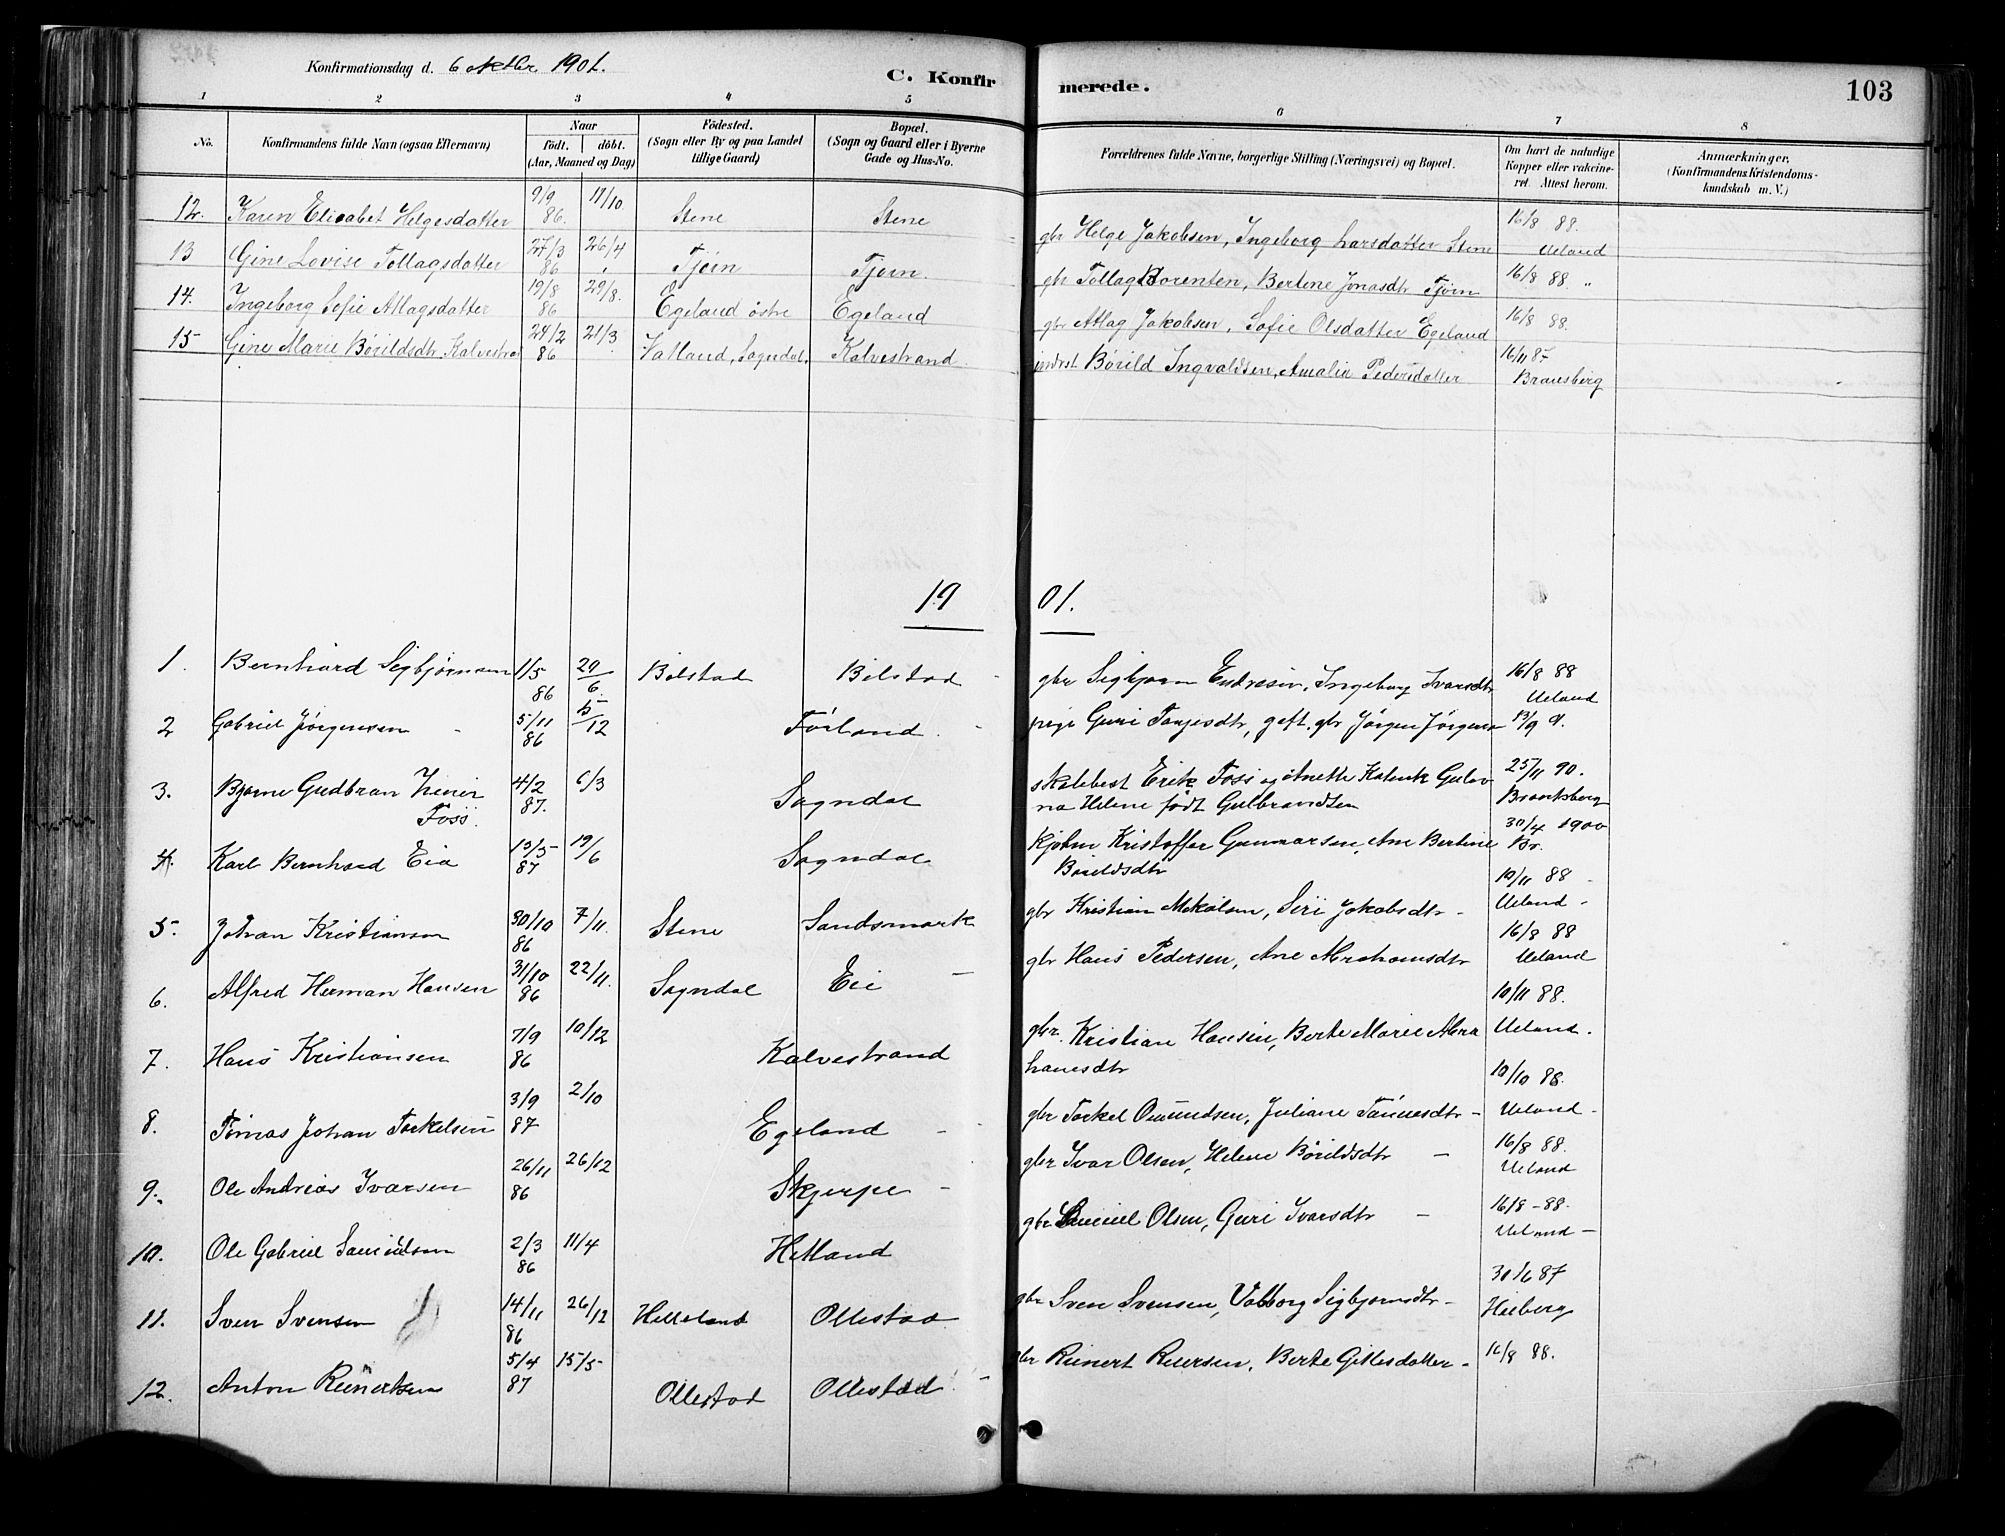 Konfirmationsdag d. 6 oktbr 1901.
C. Konfirmerede.
103
1 2 3 4 5 6 7 8
No. Konfirmandens fulde Navn (ogsaa Efternavn) Naar født. døbt. (Aar, Maaned og Dag) Fødested. (Sogn eller By og paa Landet tillige Gaard) Bopæl. (Sogn og Gaard eller i Byerne Gade og Hus-No. Forældrenes fulde Navne, borgerlige Stilling (Næringsvei) og Bopæl. Om havt de naturlige Kopper eller vakcineret. Attest herom. Anmærkninger. (Konfirmandens Kristendomskundskab m. V.)
12. Karen Elisabet Helgesdatter 9/9 86. 11/10 Stene Stene gbr Helge Jakobsen, Ingeborg Larsdatter Stene 16/8 88 Ueland
13 Gine Lovise Tollagsdatter 27/3 86 26/4 Tjørn Tjørn. gbr Tollag Torenten, Bertine Jonasdtr Tjørn 16/8 88. "
14. Ingeborg Sofie Atlagsdatter 19/8 86 29/8. Egeland østre Egeland gbr Atlag Jakobsen, Sofie Olsdatter Egeland 16/8 88.
15 Gine Marie Børildsdtr Kalvestra 24/2 86 21/3 Valland, Sogndal, Kalvestrand Børild Ingvaldsen, Amalia Pedersdatter 16/11 87 Bransberg
1901.
1. Bernhard Sigbjørnsen 1/5 86 29/6. Bilstad Bilstad gbr Sigbjørn Endresen, Ingeborg Ivarsdtr 16/8 88 Ueland
2 Gabriel Jørgensen 5/11 86 5/12 Førland. pige Guri Tarjesdtr, gift. gbr Jørgen Jørgensen 13/9 9.
3. Bjarne Gudbran Foss. 4/2 87. 6/3 Sogndal skolebest Erik Foss og Anette Gulovna Helene født Gulbrandsen 25/11 90. Brantsberg
4 Karl Bernhard Eia 13/5 87 19/6 Sogndal Kjøbm Kristoffer Gunnarsen, Ane Bertine Børildsdtr 30/4 1900 Br.
5. Johan Kristiansen 30/10 86 7/11. Stene Sandsmark gbr Kristian Mikalsen, Siri Jakobsdtr - 10/11 88 Ueland -
6. Alfred Herman Hansen 31/10 86 22/11. Sogndal Eie gbr Hans Pedersen, Ane Abrahamsdtr 16/8 88 Ueland
7. Hans Kristiansen 7/9 86 10/12 Kalvestrand gbr. Kristian Hansen, Berte Marie Abrahamsdtr 10/11 88. Ueland.
8. Tønnes Johan Torkelsen 3/9 87 2/10 Egeland - gbr Torkel Omundsen, Juliane Tønnesdtr - 10/10 88. Ueland -
9. Ole Andreas Ivarsen 26/11 86 26/12 Skjerpe - gbr Ivar Olsen, Helene Børildsdtr - 16/8 88. Ueland
10. Ole Gabriel Samuelsen 2/3 86 11/4 Hetland gbr Samuel Olsen, Guri Ivarsdtr - 16/8 - 88. Ueland -
11. Sven Svensen 14/11 86 26/12 Helleland Ollestad gbr Sven Svensen, Valborg Sigbjørnsdtr - 30/6 87 Heiberg
12. Anton Reinertsen 5/4 87 15/5 Ollestad Ollestad - gbr Reinert Reiersen, Berte Gitlesdatter - 16/8 88.